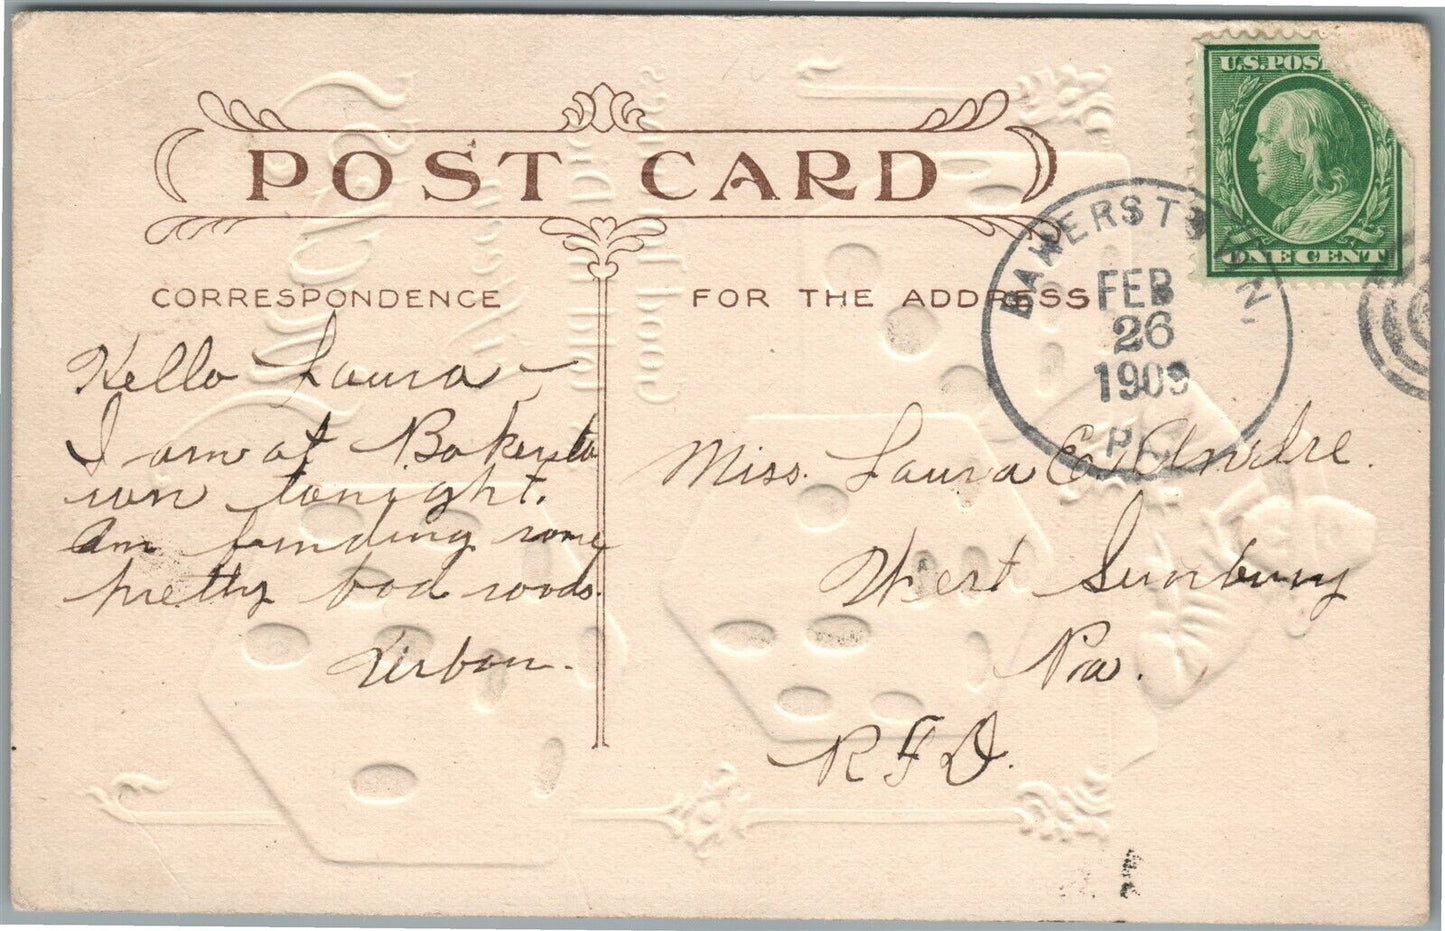 POST CARD
CORRESPONDENCE
FOR THE ADDRESS
U.S.POS
ONE CENT
FEB
26
1909
P.
Hello Laura—
I am at Bakersto
wn tonight.
Am finding some
pretty bad roads.
Urban.
Miss. Laura E. Andre.
West Sunbury
Pa.
R F D.